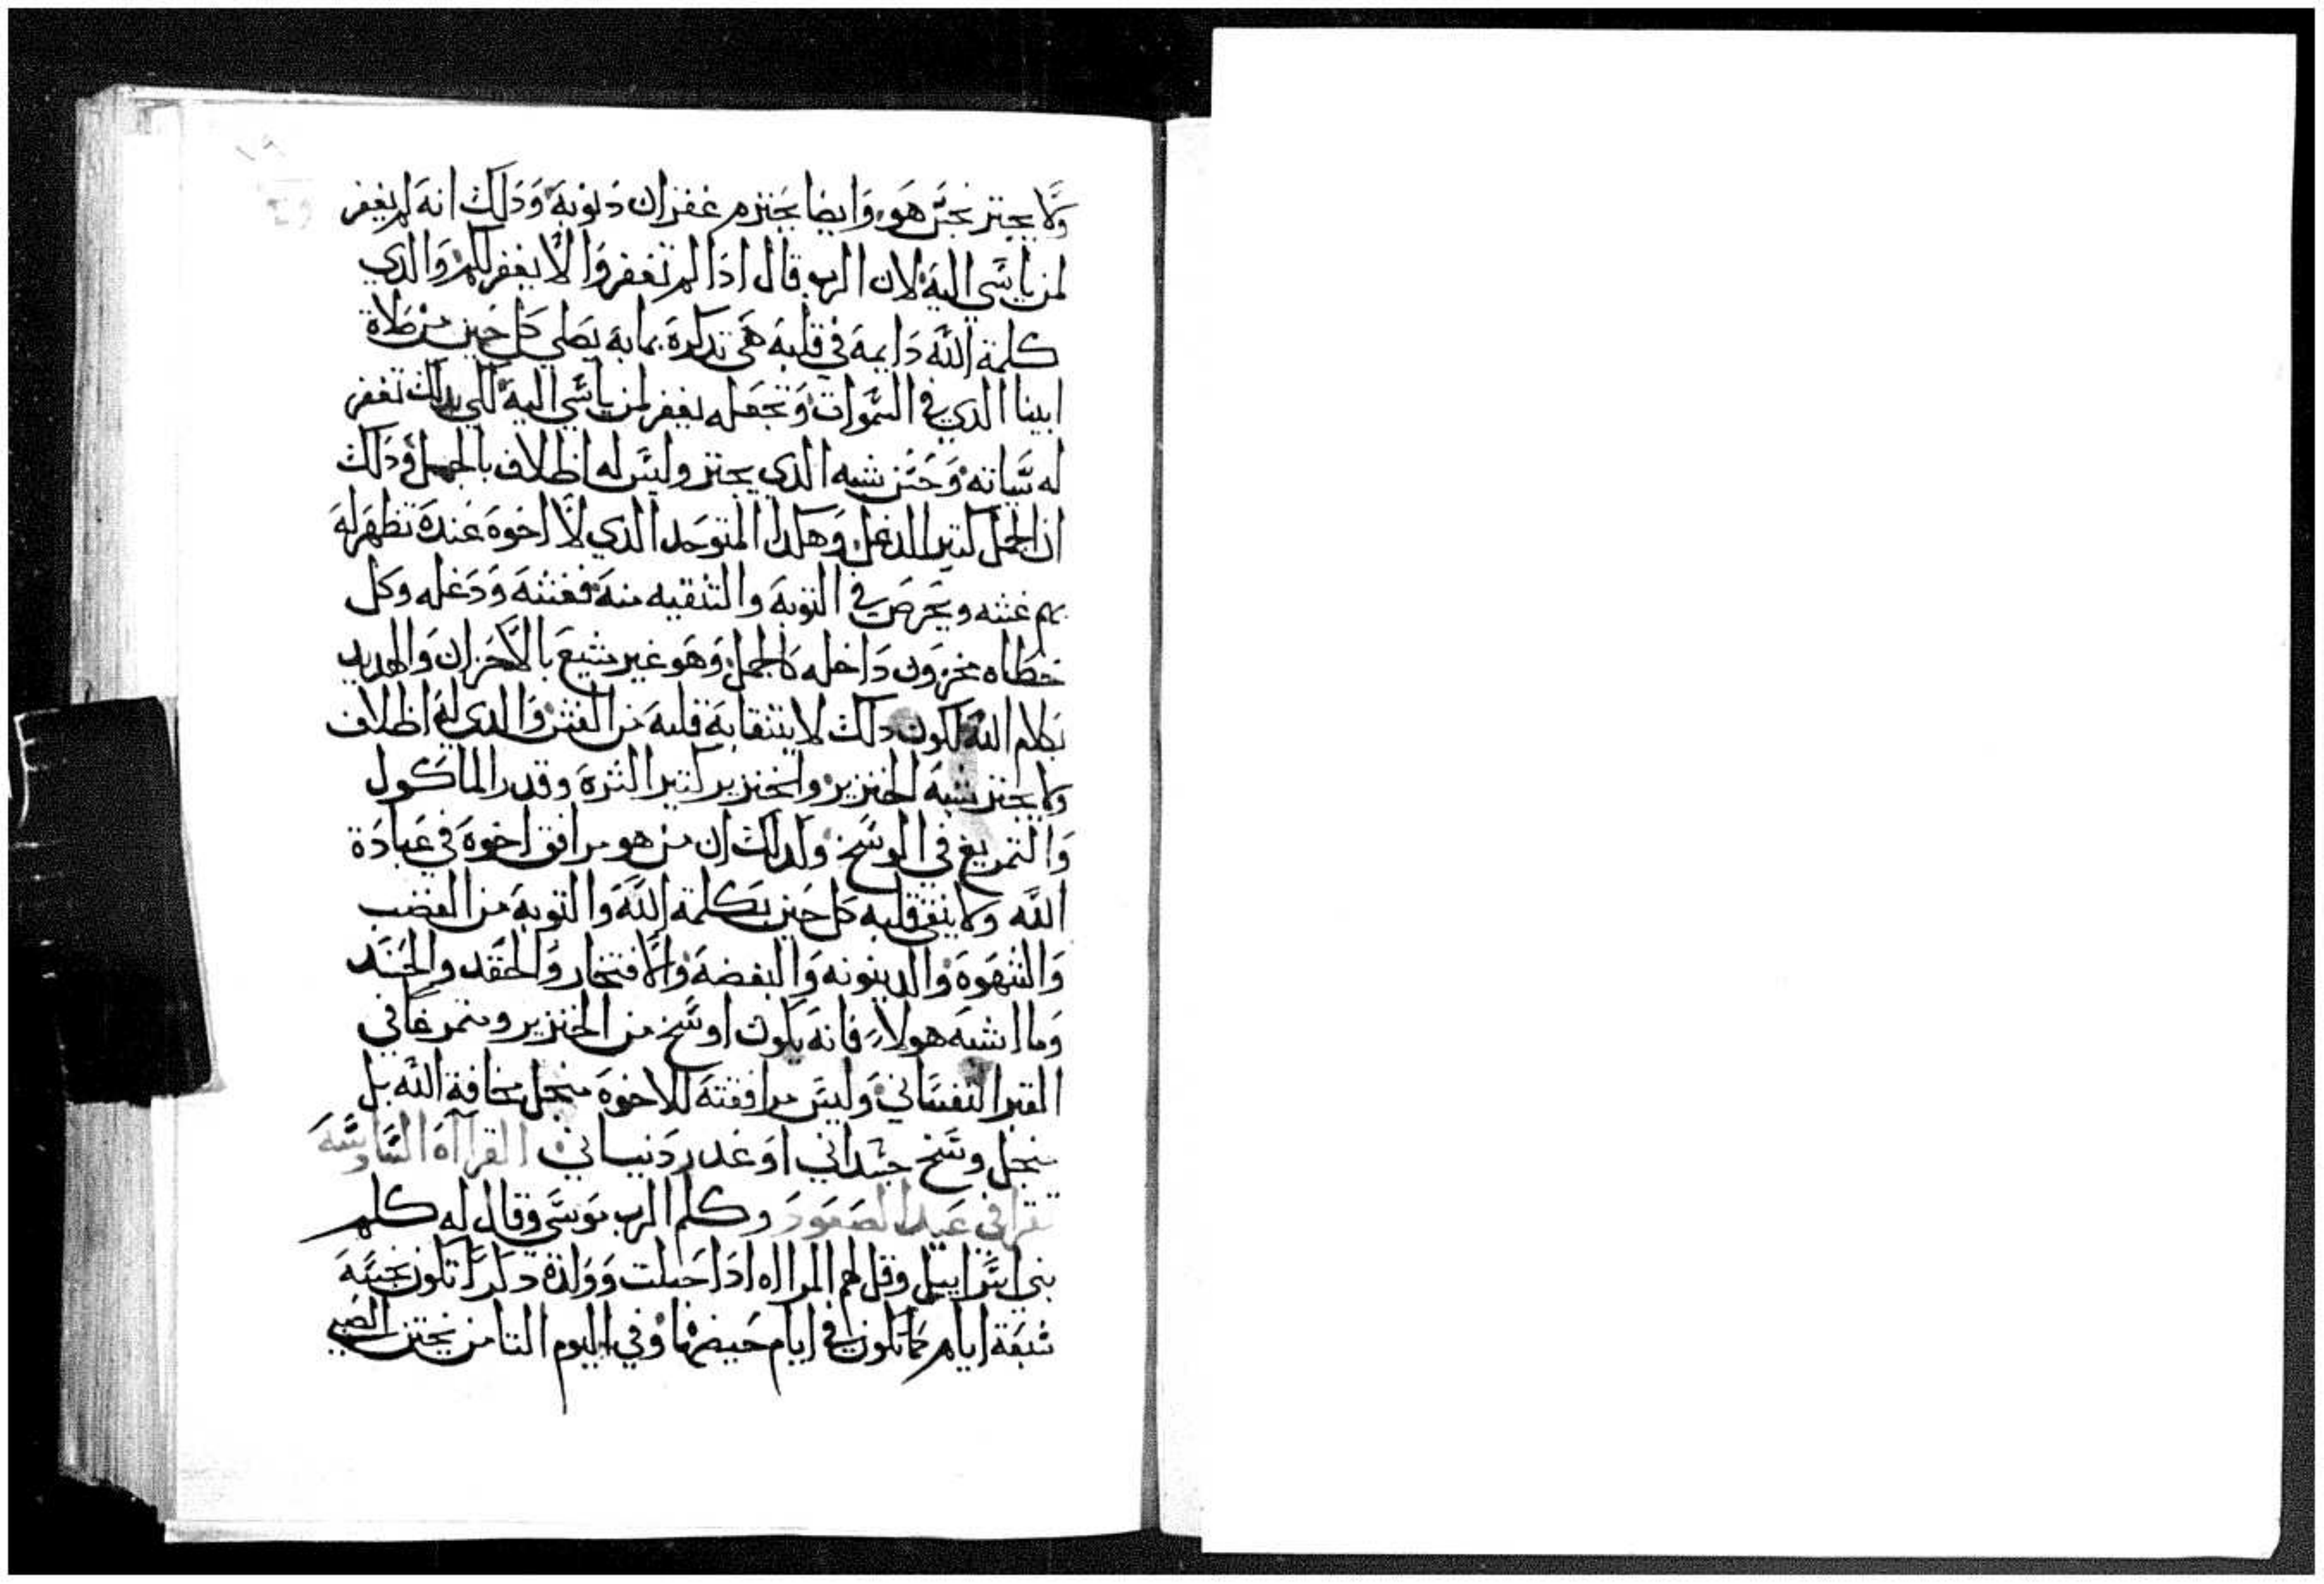 ولا يجتر نجس هو وايضا يحترم غفران دنوبه ودلك انه لم يغفر
لمن ياسي اليه لان الرب قال ادا لم تغفروا لا يغفر لكم والدي
كلمة الله دايمه في قلبه هي تدكره بما به يصلي كل حين من صلاة
ابينا الدي في السموات وتجعله يغفر لمن ياسي اليه لكي بدلك تغفر
له سياته وحسن شبه الدي يجتر وليس له اظلاف بالجمل ودلك
ان الجمل كتير الدغل وهكدا المتوحد الدي لا اخوه عنده تظهر له
بهم غشه ويحرص في التوبه والتنقيه منه فغشه ودغله وكل
خطاه مخزون داخله كالجمل وهو غير شبع بالاحزان والهديد
بكلام الله لكون دلك لا يتنقا به قلبه من الغش والدي له اظلاف
ولا يجتر شبه الخنزير والخنزير كتير الشره وقدر الماكول
والتمريغ في الوسخ ولدلك ان من هو مرافق اخوه في عبادة
الله ولا ينقي قلبه كل حين بكلمة الله والتوبه من الغضب
والشهوه والدينونه والبغضه والافتخار والحقد والحسد
وما اشبه هولاء فانه يكون اوسخ من الخنزير ومتمرغا في
القبر النفساني وليس مرافقته للاخوه منجل مخافة الله بل
منجل وسخ جسداني او غدر دنيـاني القرااه السادسه
تقرا في عيد الصعود وكلم الرب موسى وقال له كلم
بني اسراييل وقل لهم المراه ادا حبلت وولدة دكرا تكون نجسه
سبعة ايام كما تكون في ايام حيضها وفي اليوم التامن يختتن الصبي